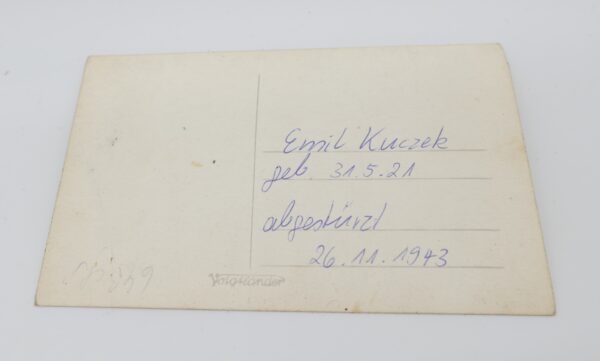 Emil Kuczek
geb. 31.5.21
abgestürzt
26.11.1943
Voigtländer